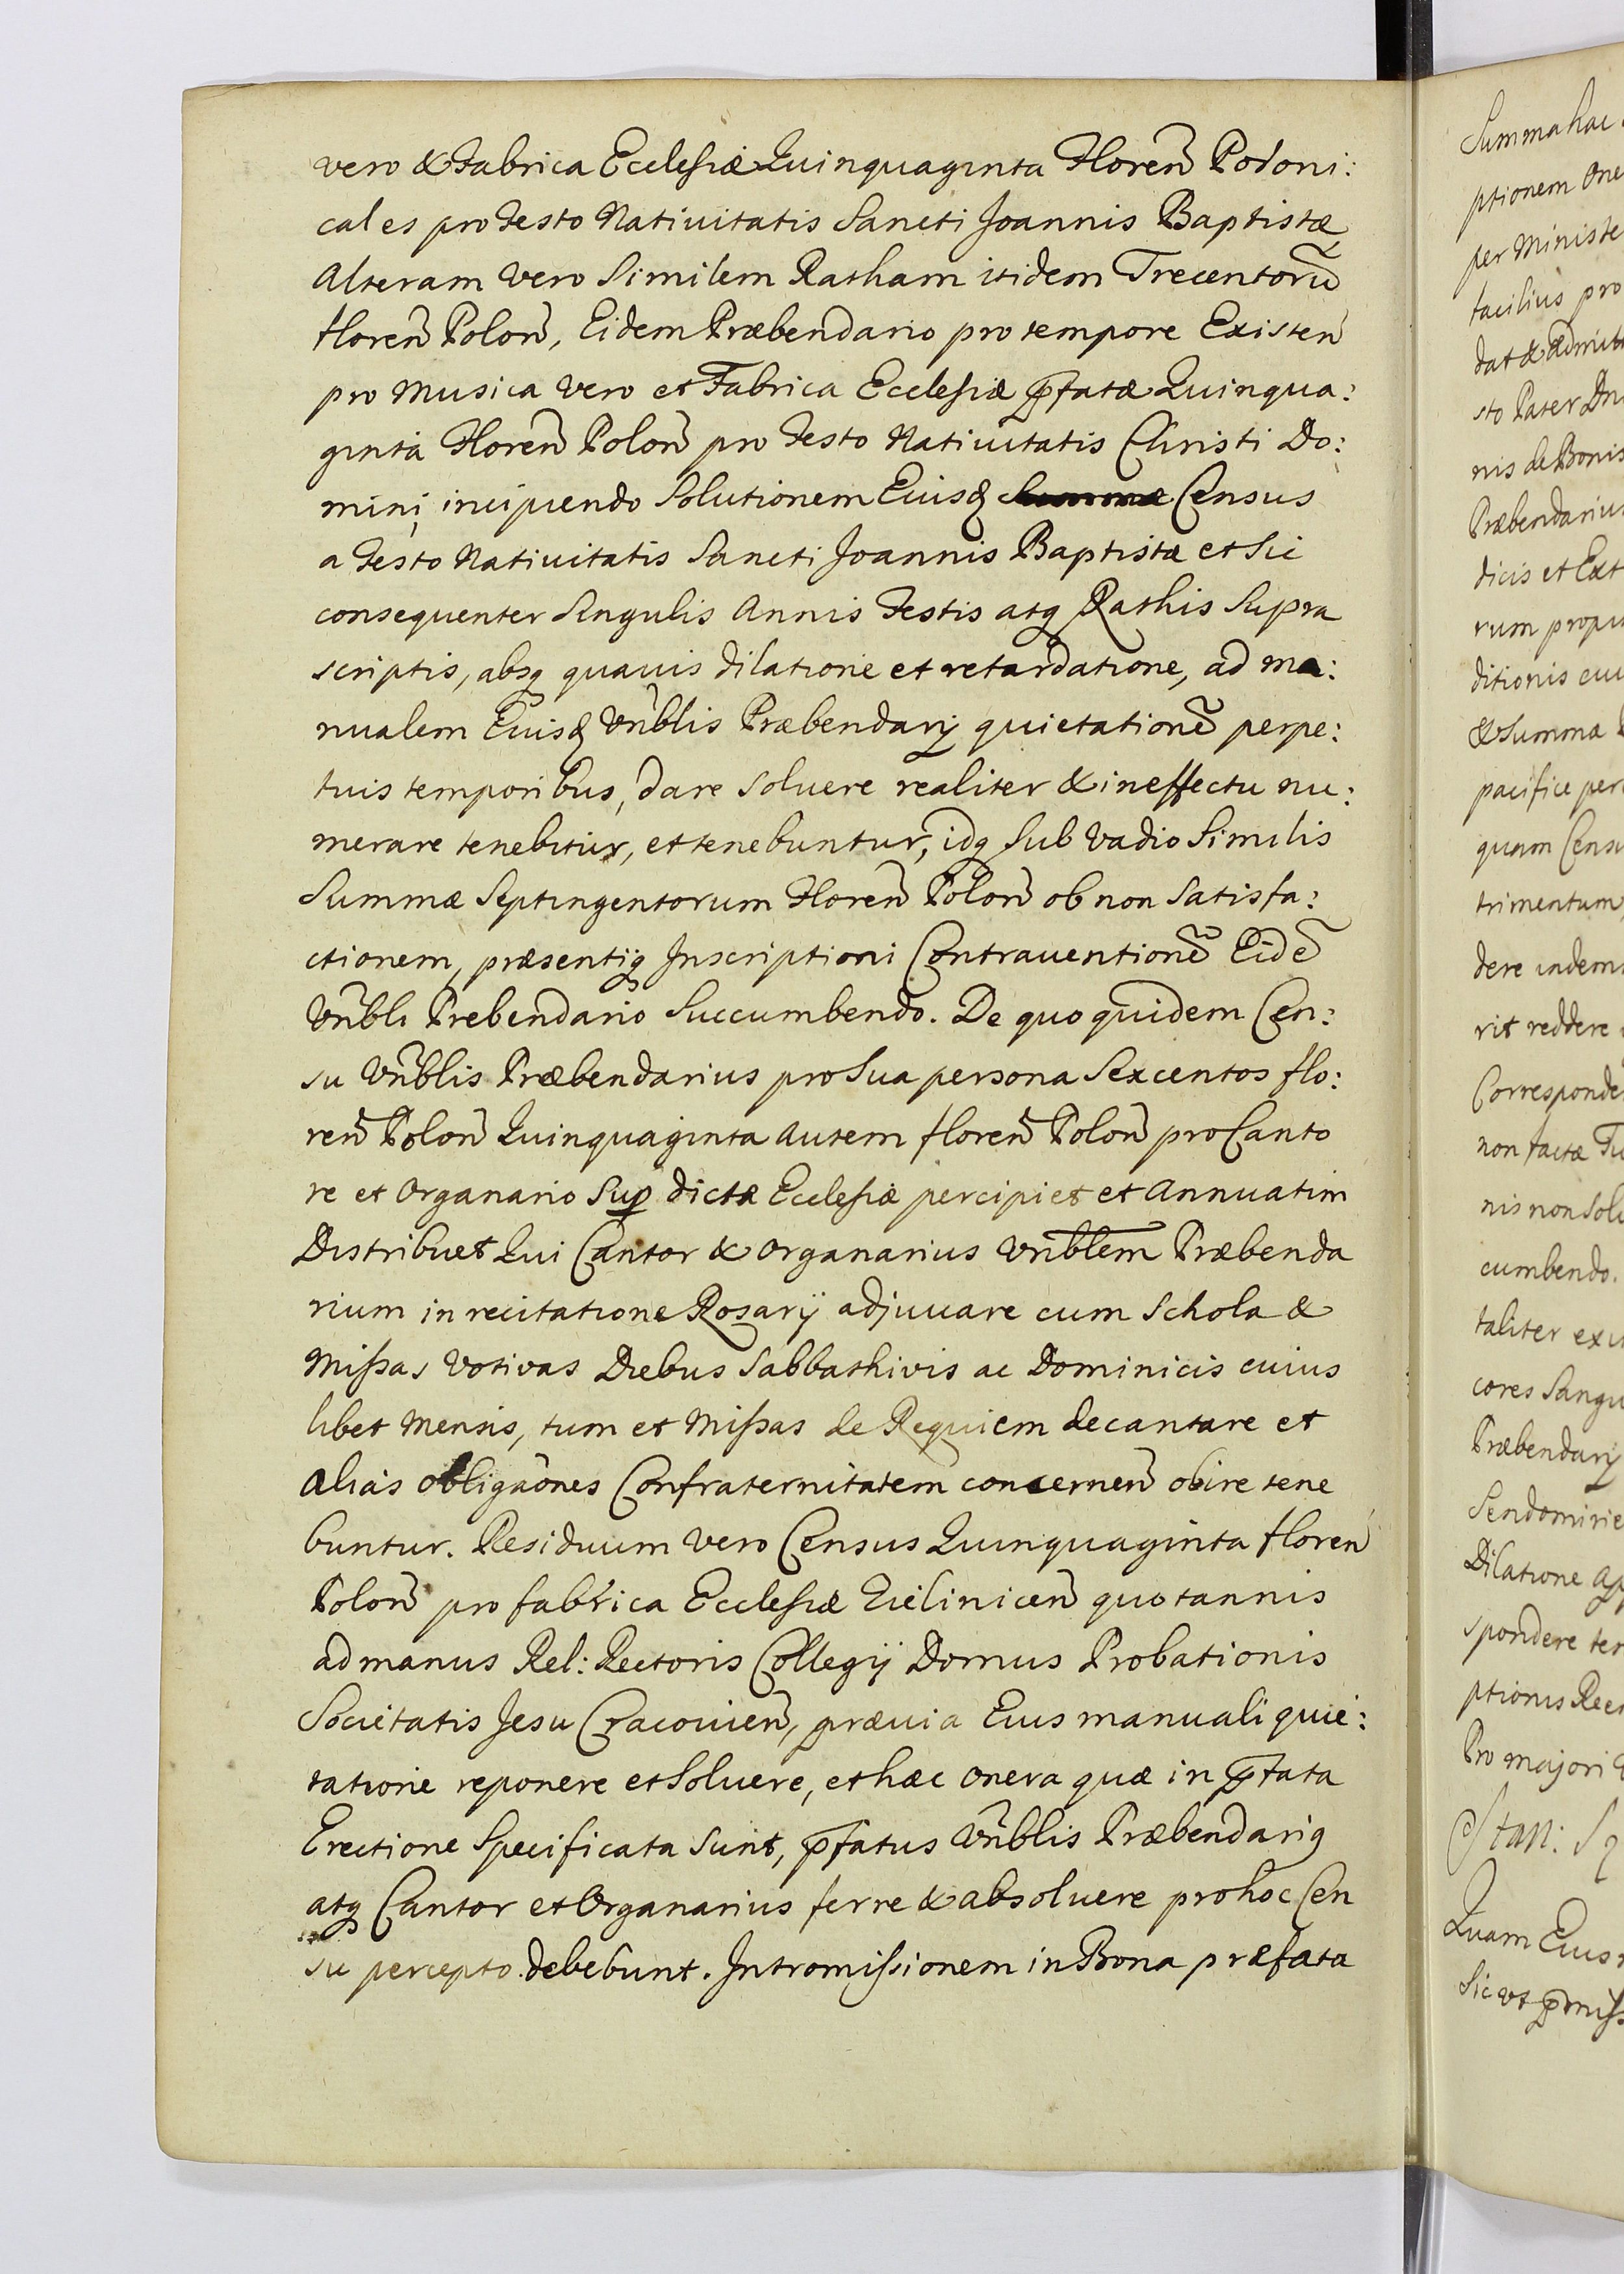 vero & Fabrica Ecclesiæ Quinquaginta Floreñ Poloni:
cales pro Festo Natiuitatis Sancti Joannis Baptistæ
Alteram vero Similem Ratham itidem Trecentorũ
floreñ Poloñ, Eidem Præbendario pro tempore Existeñ
pro Musica vero et Fabrica Ecclesiæ p̃fatæ Quinqua:
ginta Floreñ Poloñ pro Festo Natiuitatis Christi Do:
mini, incipiendo Solutionem Euisɖ Summæ Census
a Festo Natiuitatis Sancti Joannis Baptistæ et Sic
consequenter Singulis Annis Festis atq Rathis Supra
scriptis, absq quauis dilatione et retardatione, ad ma:
nualem Euisɖ Vñblis Præbendarij quietationẽ perpe:
tuis temporibus, dare soluere realiter & in effectu nu:
merare tenebitur, et tenebuntur, idq Sub Vadio Similis
Summæ Septingentorum Floreñ Poloñ ob non Satisfa:
ctionem, præsentiq Inscriptioni Contrauentionẽ Eidẽ
Vñbli Prebendario Succumbendo. De quo quidem Cen:
su Vñblis Præbendarius pro Sua persona Sexcentos flo:
reñ Poloñ Quinquaginta Autem floreñ Poloñ pro Canto
re et Organario Sup dictæ Ecclesiæ percipiet et Annuatim
Distribuet Qui Cantor & Organarius Vñblem Præbenda
rium in recitatione Rosarij adjuuare cum Schola &
Missas Votivas Diebus Sabbathivis ac Dominicis cuius
libet Mensis, tum et Missas de Requiem decantare et
alias obligãones Confraternitatem concerneñ obire tene
buntur. Residuum vero Census Quinquaginta floreñ
Poloñ pro fabrica Ecclesiæ Eieliniceñ quotannis
ad manus Rel: Rectoris Collegij Domus Probationis
Societatis Jesu Cracouieñ, præuia Eius manuali quie:
tatione reponere et Soluere, et hæc onera quæ in p̃fata
Erectione Specificata Sunt, p̃fatus Vñblis Præbendariq
atq Cantor et Organarius ferre & absoluere pro hoc Cen
su percepto debebunt. Intromissionem in Bona præfata
Summa hac
ptionem One
per Ministe
facilius pro
dat & Admitt
sto Pater Dn
nis de Bonis
Præbendarius
dicis et Ext
rum propi
ditionis cui
& Summa
pacifice per
quam Censu
trimentum
dere indemn
rit reddere
Corresponde
non factæ
nis non Solu
cumbendo.
taliter
cores Sangu
Præbendarij
Sendomirie
Dilatione
spondere ten
ptionis Rec
Pro majori
Stan:
Quam Eius
Sic vt p̃miss